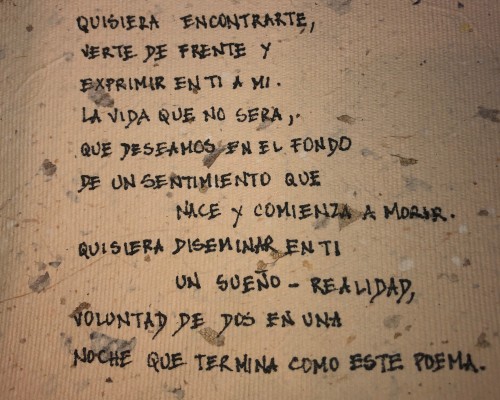 QUISIERA ENCONTRARTE,
VERTE DE FRENTE Y
EXPRIMIR EN TI A MI.
LA VIDA QUE NO SERA,
QUE DESEAMOS EN EL FONDO
DE UN SENTIMIENTO QUE
NACE Y COMIENZA A MORIR.
QUISIERA DISEMINAR EN TI
UN SUEÑO - REALIDAD,
VOLUNTAD DE DOS EN UNA
NOCHE QUE TERMINA COMO ESTE POEMA.